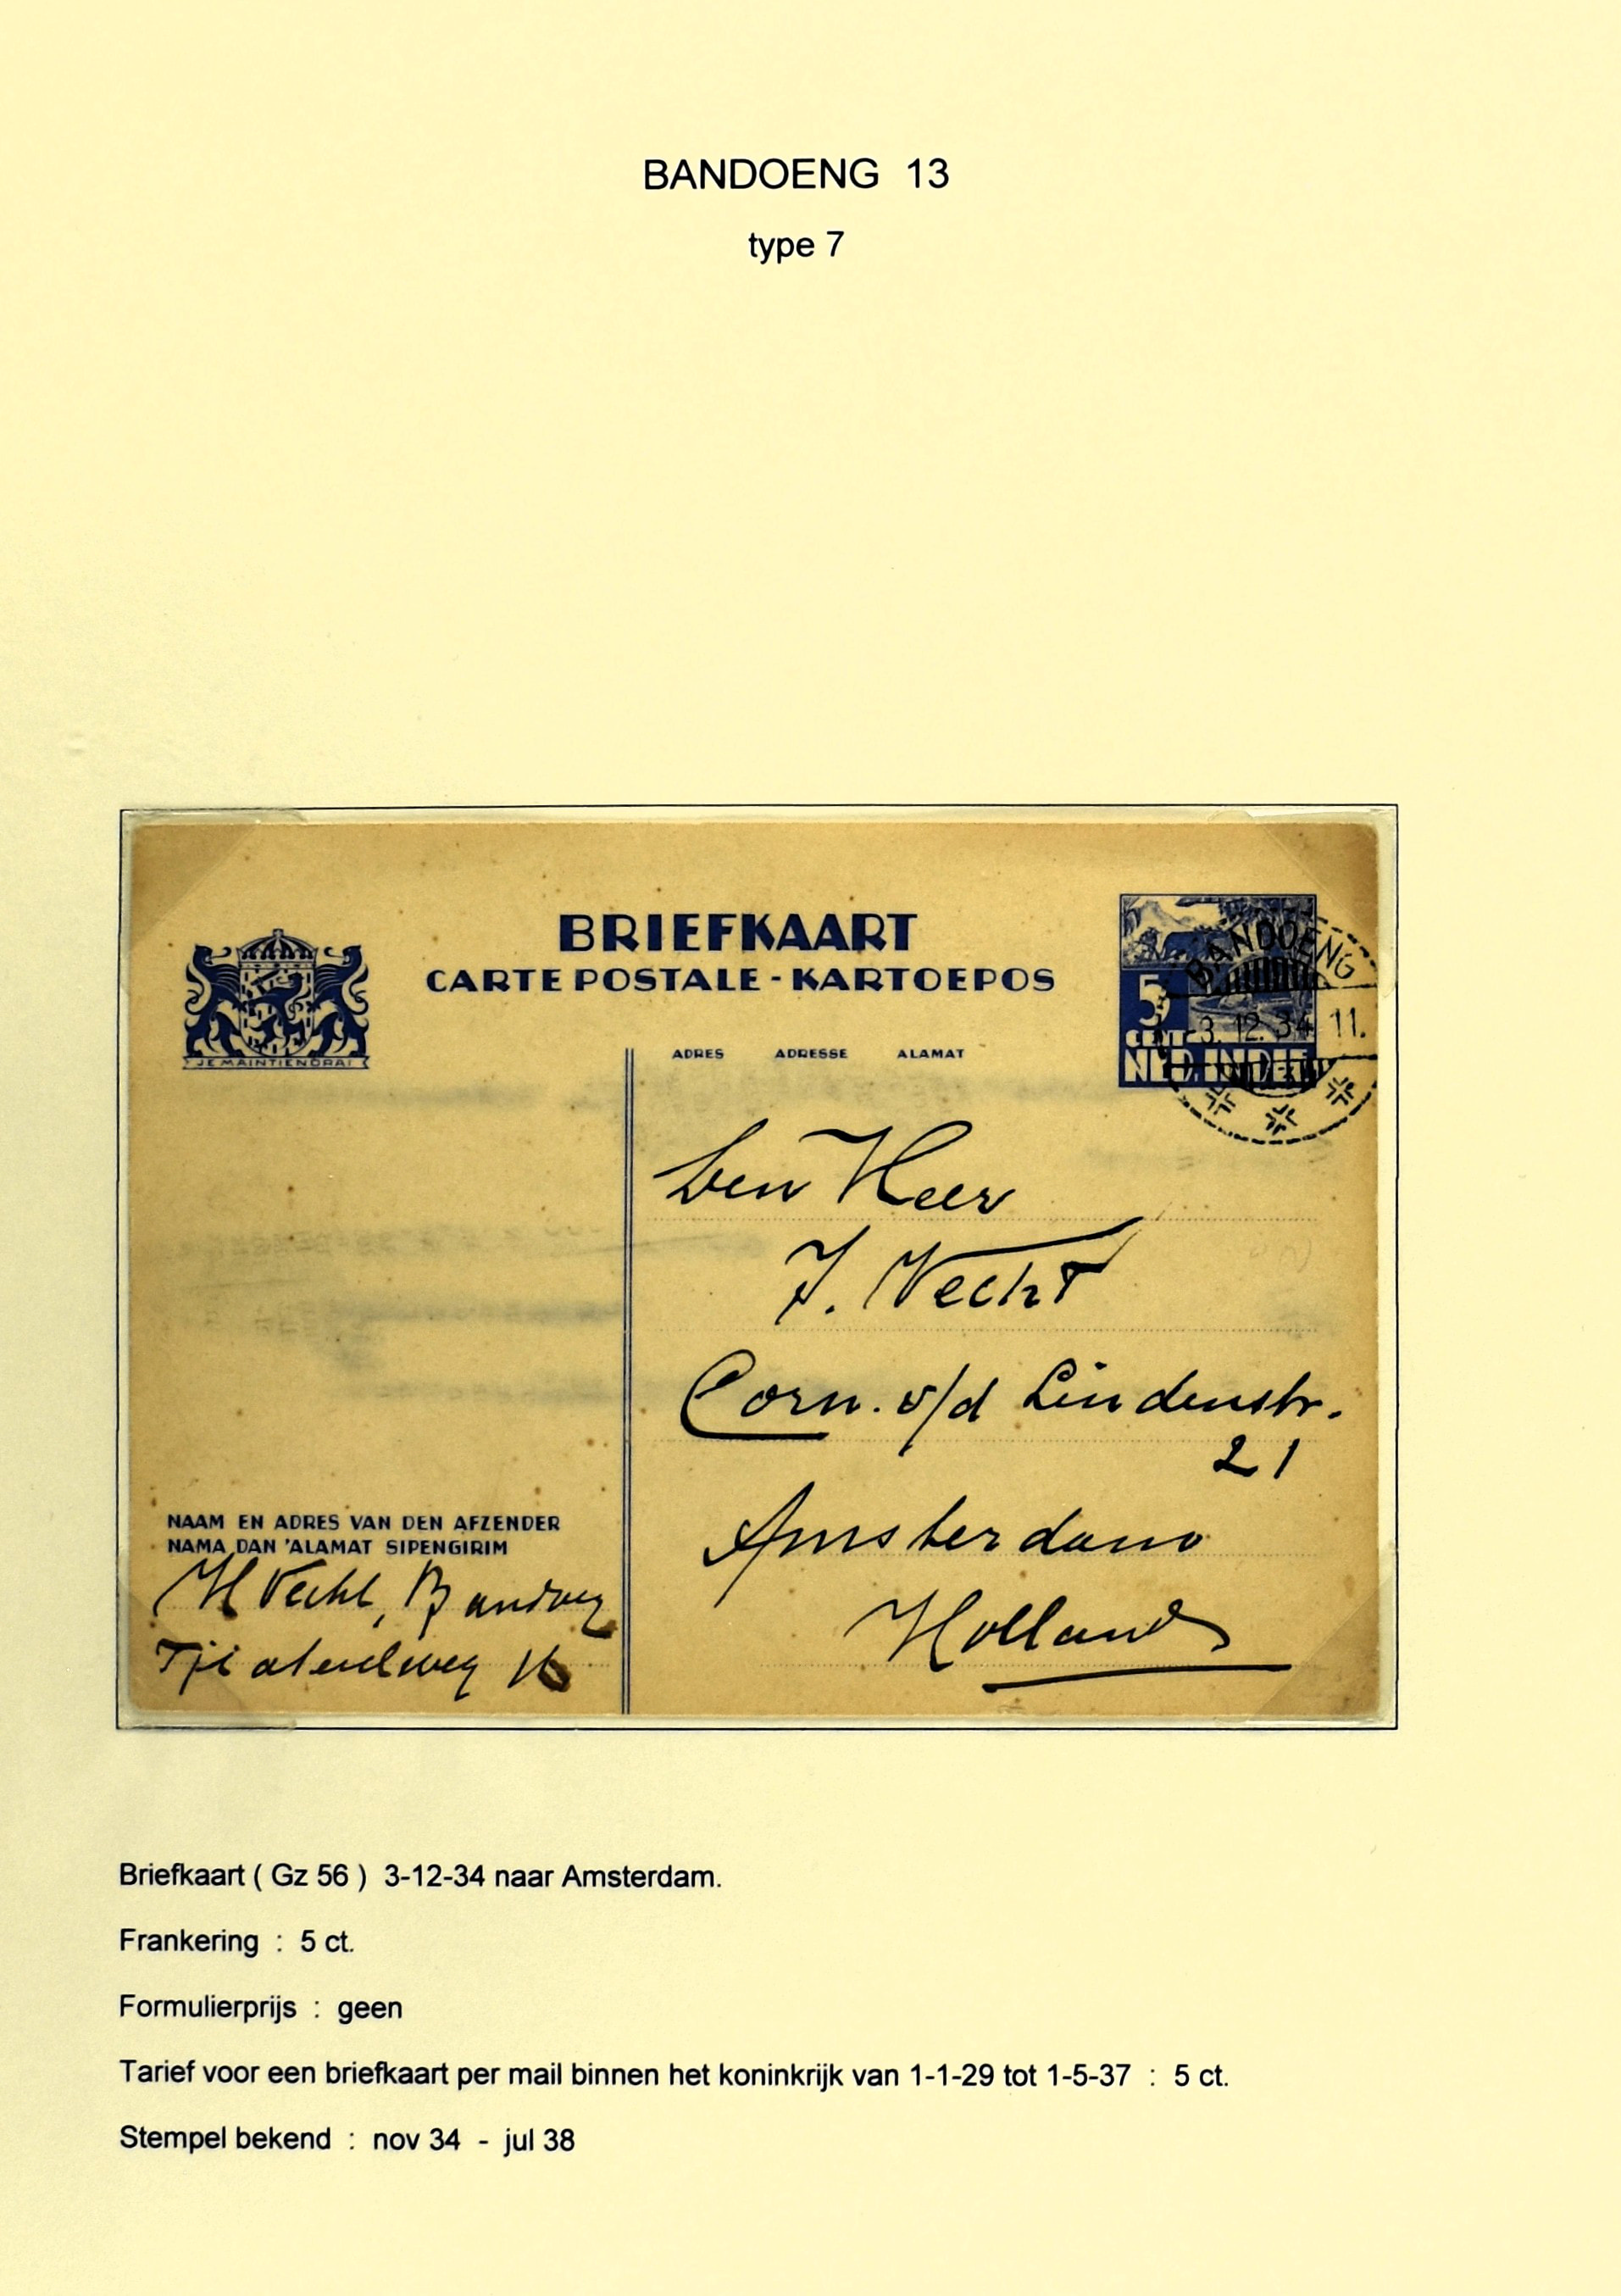 BANDOENG 13
type 7
BRIEFKAART
CARTE POSTALE - KARTOEPOS
JE MAINTIENDRAI
ADRES ADRESSE ALAMAT
5
CENT
NED. INDIE
BANDOENG
3.12.34 11.
Den Heer
J. Vecht
Corn. v/d Lindenstr.
21
Amsterdam
Holland
NAAM EN ADRES VAN DEN AFZENDER
NAMA DAN 'ALAMAT SIPENGIRIM
H Vecht, Bandoeng
16
Briefkaart ( Gz 56 ) 3-12-34 naar Amsterdam.
Frankering : 5 ct.
Formulierprijs : geen
Tarief voor een briefkaart per mail binnen het koninkrijk van 1-1-29 tot 1-5-37 : 5 ct.
Stempel bekend : nov 34 - jul 38